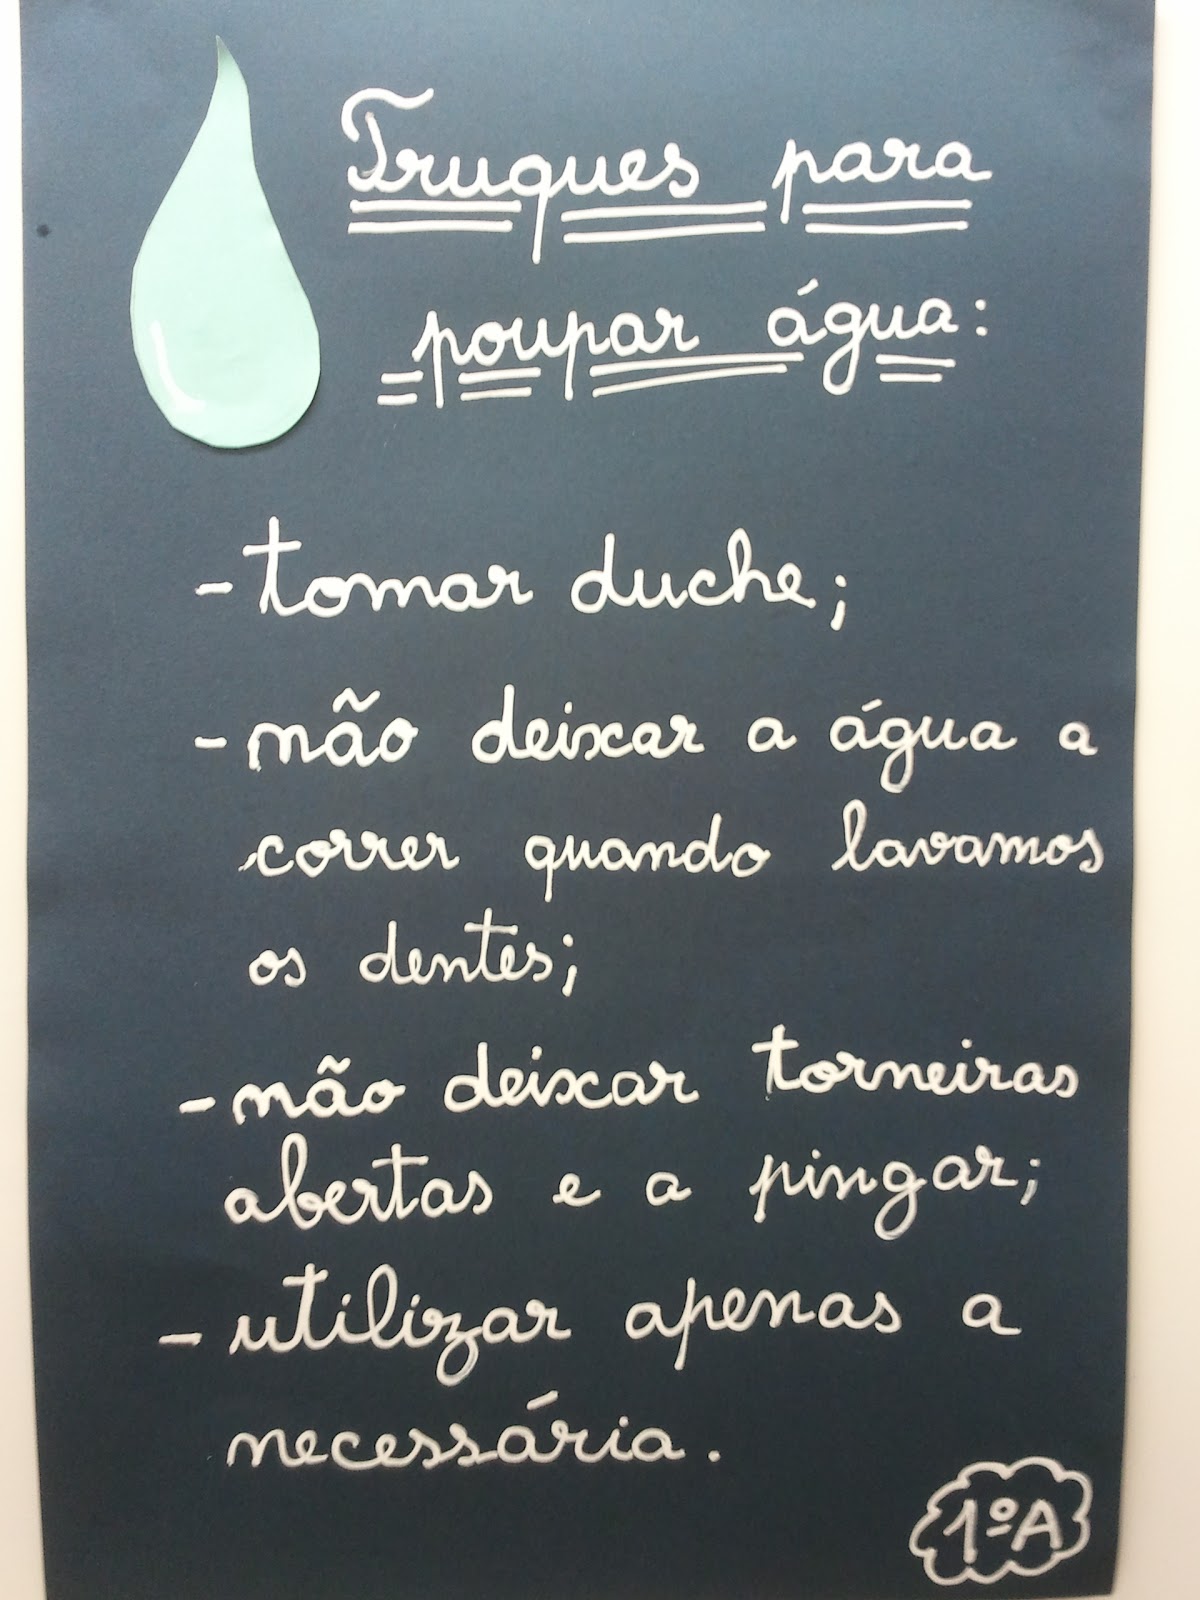 Truques para
poupar água:
- tomar duche;
- não deixar a água a
correr quando lavamos
os dentes;
- não deixar torneiras
abertas e a pingar;
- utilizar apenas a
necessária.
1ºA